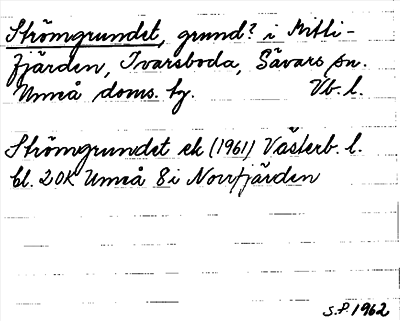 Strömgrundet, grund? i Mitti-
fjärden, Ivarsboda, Sävars sn.
Umeå doms. hg. Vb. l.
Strömgrundet ek (1961) Västerb. l.
bl. 20K Umeå 8i Norrfjärden
S.P. 1962